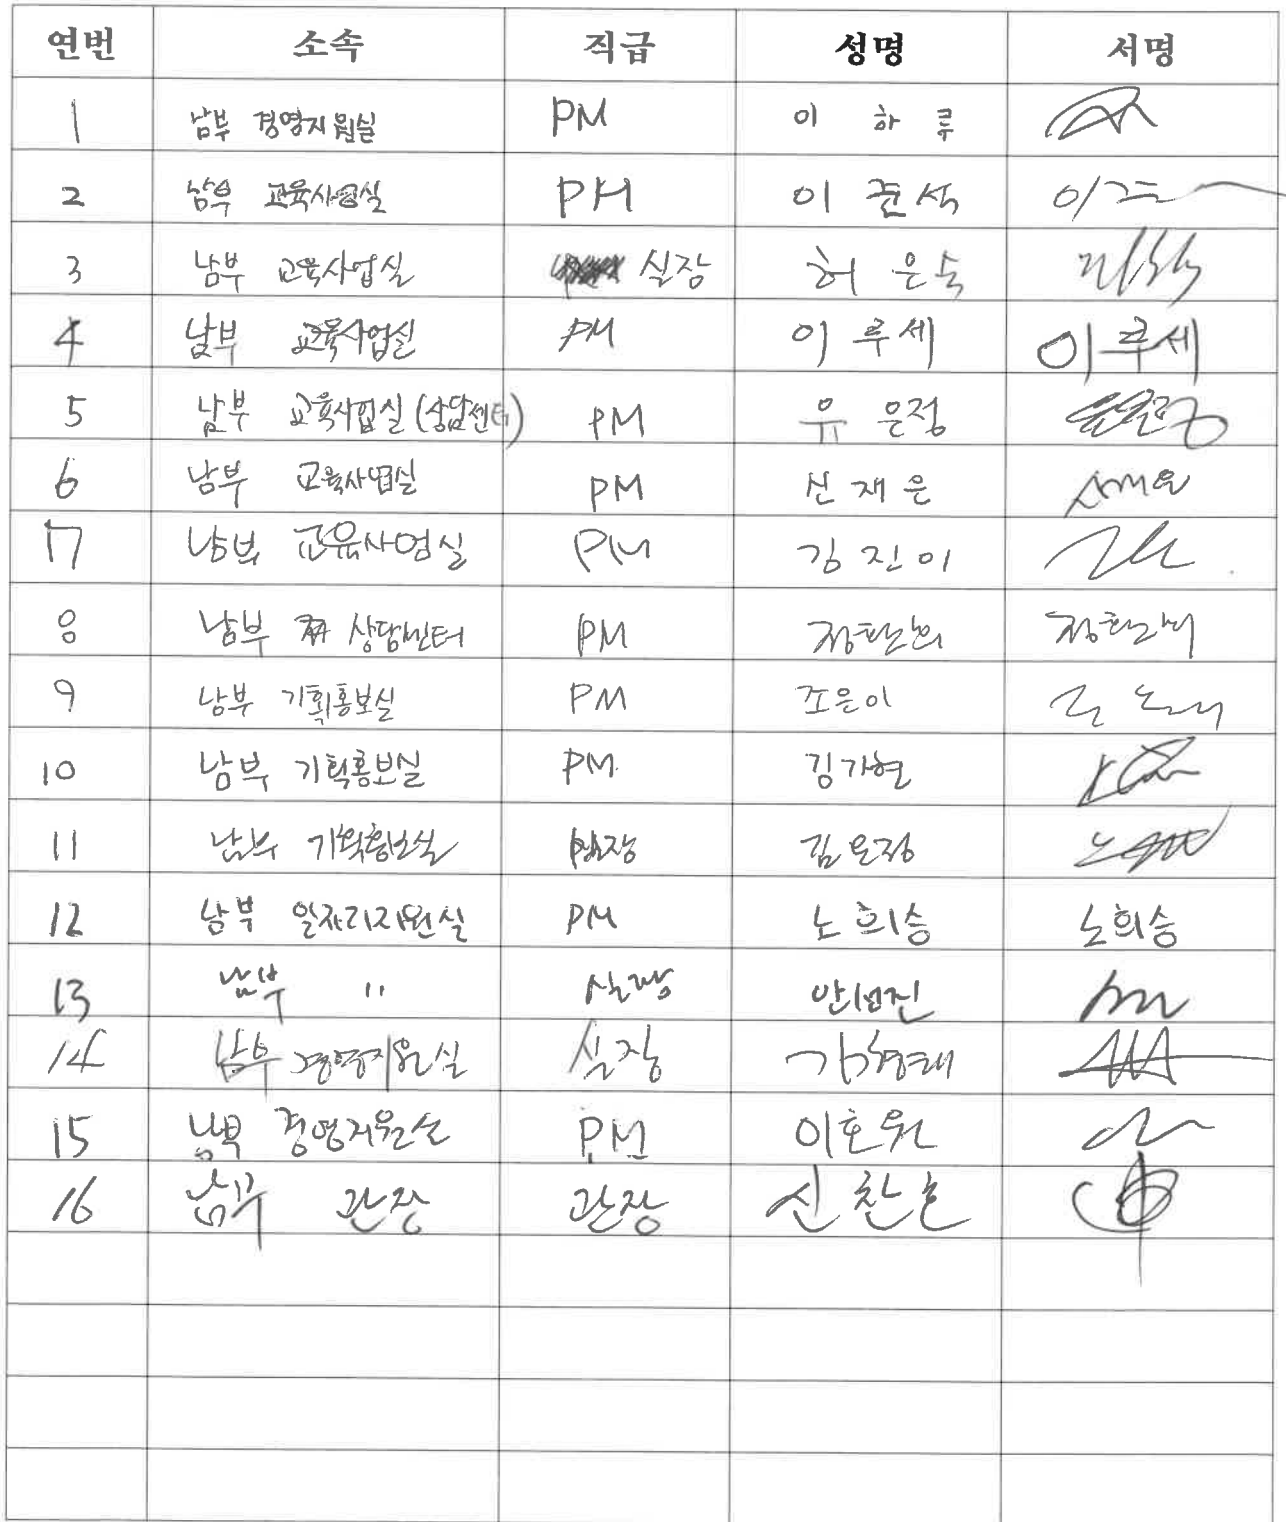 연번 소속 직급 성명 서명
1 남부 경영지원실 PM 이 하 루
2 남부 교육사업실 PM 이 준석
3 남부 교육사업실 실장 허 은숙
4 남부 교육사업실 PM 이 루세 이루세
5 남부 교육사업실 (상담센터) PM 유 은정
6 남부 교육사업실 PM 신 재 은 신재은
17 남부 교육사업실 PM 김 진 이
8 남부 상담센터 PM
9 남부 기획홍보실 PM 조은이
10 남부 기획홍보실 PM 김가현
11 남부 기획홍보실 실장 김은정
12 남부 일자리지원실 PM 노희승 노희승
13 남부 〃 실장
14 남부 경영지원실 실장
15 남부 경영지원실 PM 이호원
16 남부 관장 관장 신찬호